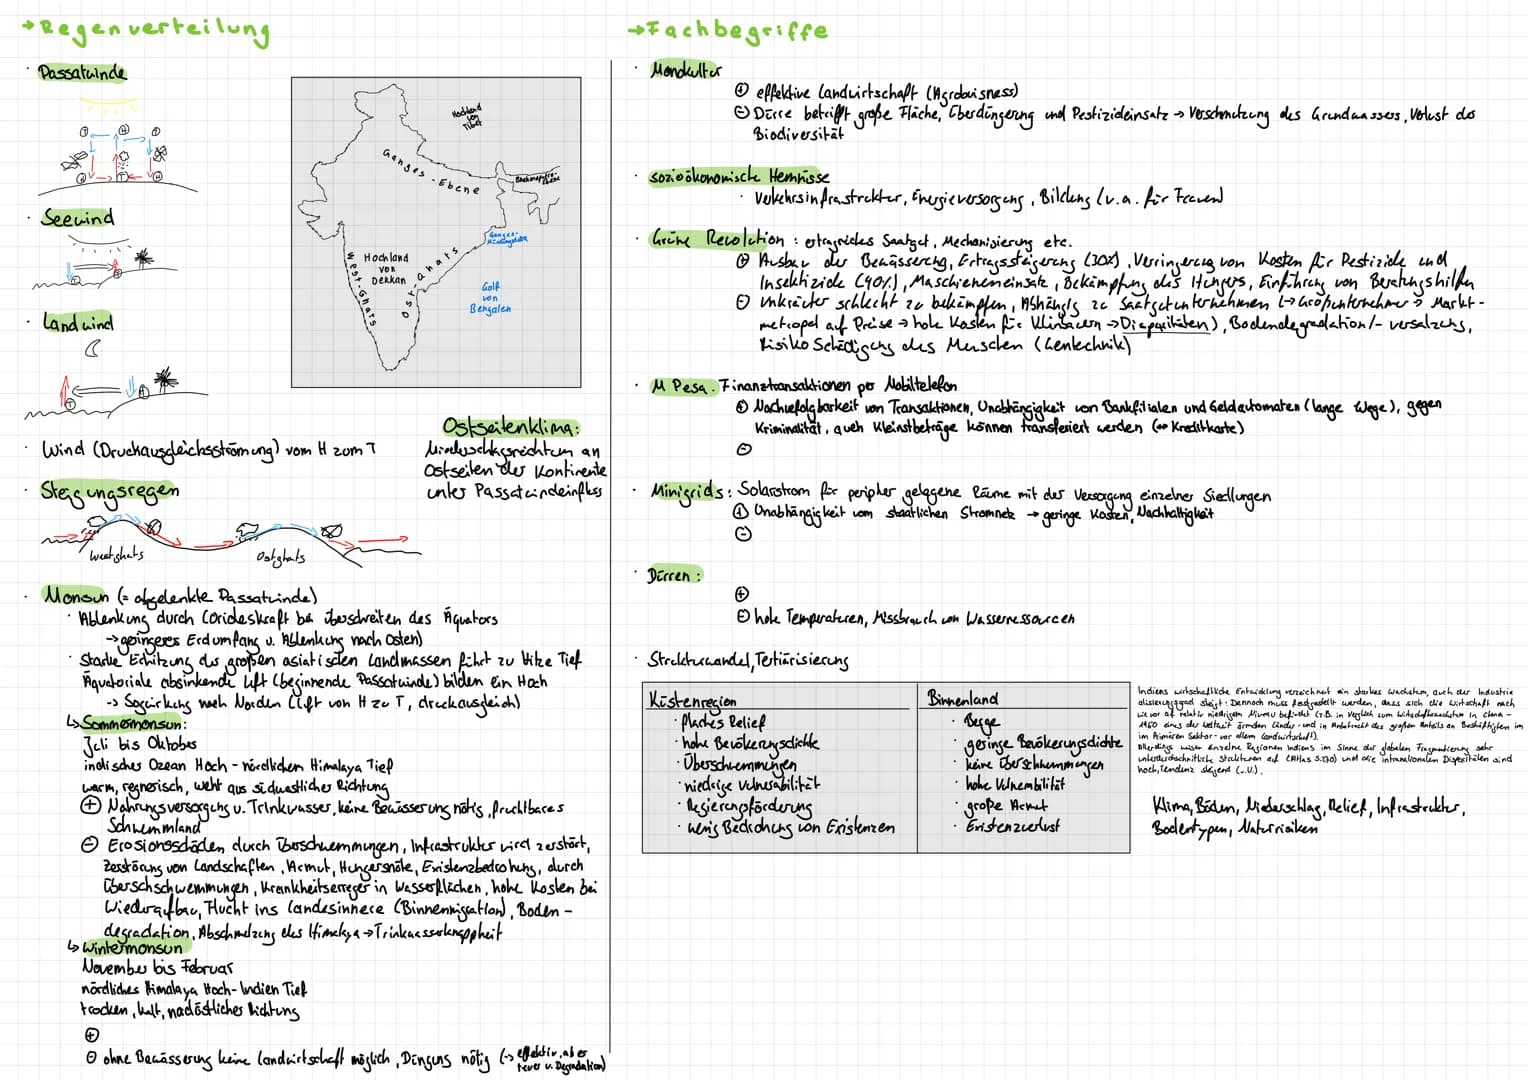 →Regenverteilung
· Passatwinde
· Seewind
· Landwind
· Wind (Druckausgleichsströmung) vom H zum T
· Steigungsregen
Westghats
Ostghats
Hochland von Tibet
Ganges-Ebene
Hochland
von
Dekkan
West-Ghats
Ost-Ghats
Golf
von
Bengalen
Ostseitenklima:
Niederschlagsreichtum an
Ostseiten der Kontinente
unter Passatwindeinfluss
· Monsun (= abgelenkte Passatwinde)
· Ablenkung durch Corioliskraft bei überschreiten des Äquators
→geringeres Erdumfang u. Ablenkung nach Osten)
· Starke Erhitzung des großen asiatischen Landmassen führt zu Hitze Tief
Äquatoriale absinkende Luft (beginnende Passatwinde) bilden ein Hoch
-> Sogwirkung nach Norden (Luft von H zu T, druckausgleich)
↳Sommermonsun:
Juli bis Oktober
indischer Ozean Hoch - nördlichen Himalaya Tief
warm, regnerisch, weht aus südwestlicher Richtung
⊕ Nahrungsversorgung u. Trinkwasser, keine Bewässerung nötig, fruchtbares
Schwemmland
⊖ Erosionsschäden durch Überschwemmungen, Infrastruktur wird zerstört,
Zerstörung von Landschaften, Armut, Hungersnöte, Existenzbedrohung, durch
Überschschwemmungen, Krankheitserreger in Wasserflächen, hohe Kosten bei
Wiederaufbau, Flucht ins Landesinnere (Binnenmigration), Boden-
degradation, Abschmelzung des Himalaya → Trinkwasserknappheit
↳Wintermonsun
November bis Februar
nördliches Himalaya Hoch- Indien Tief
trocken, kalt, nordöstlicher Richtung
⊕
⊖ ohne Bewässerung keine Landwirtschaft möglich, Düngung nötig (-> effektiv, aber
teuer u. Degradation)
→Fachbegriffe
· Monokultur
⊕ effektive Landwirtschaft (Agrobuisness)
⊖ Dürre betrifft große Fläche, Überdüngerung und Pestizideinsatz → Verschmutzung des Grundwassers, Verlust der
Biodiversität
· sozioökonomische Hemnisse
· Verkehrsinfrastruktur, Energieversorgung, Bildung (v.a. für Frauen)
· Grüne Revolution: ertragreiches Saatgut, Mechanisierung etc.
⊕ Ausbau der Bewässerung, Ertragssteigerung (30%), Verringerung von Kosten für Pestizide und
Insektizide (40%), Maschieneneinsatz, Bekämpfung des Hungers, Einführung von Beratungshilfen
⊖ Unkräuter schlecht zu bekämpfen, Abhängig zu Saatgutunternehmen (→Großunternehmer → Markt-
metropol auf Preise → hohe Kosten für Kleinbauern → Disparitäten), Bodendegradation/- versalzung,
Risiko Schädigung des Menschen (Gentechnik)
· M Pesa: Finanztransaktionen per Mobiltelefon
⊕ Nachverfolgbarkeit von Transaktionen, Unabhängigkeit von Bankfilialen und Geldautomaten (lange Wege), gegen
Kriminalität, auch Kleinstbeträge können transferiert werden (↔ Kreditkarte)
⊖
· Minigrids: Solarstrom für peripher gelegene Räume mit der Versorgung einzelner Siedlungen
⊕ Unabhängigkeit vom staatlichen Stromnetz → geringe Kosten, Nachhaltigkeit
⊖
· Dürren:
⊕
⊖ hohe Temperaturen, Missbrauch von Wasserressourcen
· Strukturwandel, Tertiärisierung
Küstenregion
· flaches Relief
· hohe Bevölkerungsdichte
· Überschwemmungen
· niedrige Vulnerabilität
· Regierungsförderung
· wenig Bedrohung von Existenzen
Binnenland
· Berge
· geringe Bevölkerungsdichte
· keine Überschwemmungen
· hohe Vulnerabilität
· große Armut
· Existenzverlust
Indiens wirtschaftliche Entwicklung verzeichnet ein starkes Wachstum, auch der Industrie
alisierungsgrad steigt. Dennoch muss festgestellt werden, dass sich die Wirtschaft nach
wie vor auf relativ niedrigem Niveau befindet (z.B. im Vergleich zum Wirtschaftswachstum in China -
eines der weltweit ärmsten Länder - und in Anbetracht des großen Anteils an Beschäftigten im
im Primären Sektor - vor allem Landwirtschaft).
Allerdings weisen einzelne Regionen Indiens im Sinne der globalen Fragmentierung sehr
unterdurchschnittliche Strukturen auf (Atlas S.170) und die intranationalen Disparitäten sind
hoch, Tendenz steigend (..U.).
Klima, Böden, Niederschlag, Relief, Infrastruktur,
Bodentypen, Naturrisiken